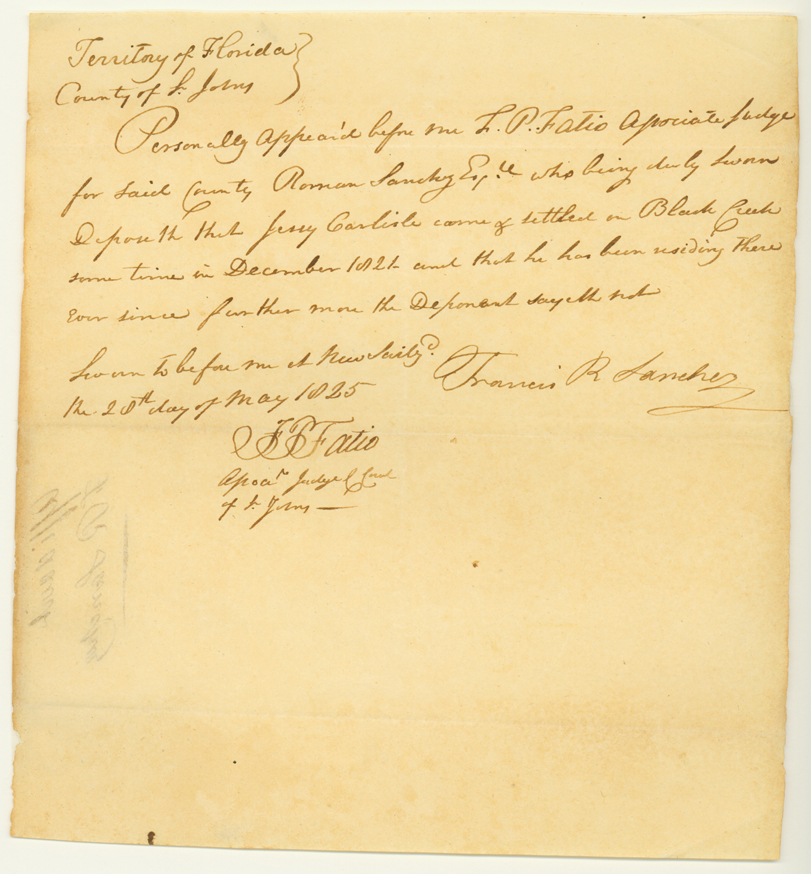 Territory of Florida
County of St Johns
Personally appeard before me F. P. Fatio Associate Judge
for said County Roman Sanchez Esqre who being duly Sworn
Deposeth that Jessy Carlisle came & settled on Black Creek
some time in December 1821 and that he has been residing there
ever since further more the Deponent sayeth not
Sworn to before me at New
the 28th day of May 1825
Francis R Sanchez
F P Fatio
Assoct Judge
of St Johns
F R Sanchez
Affidavit